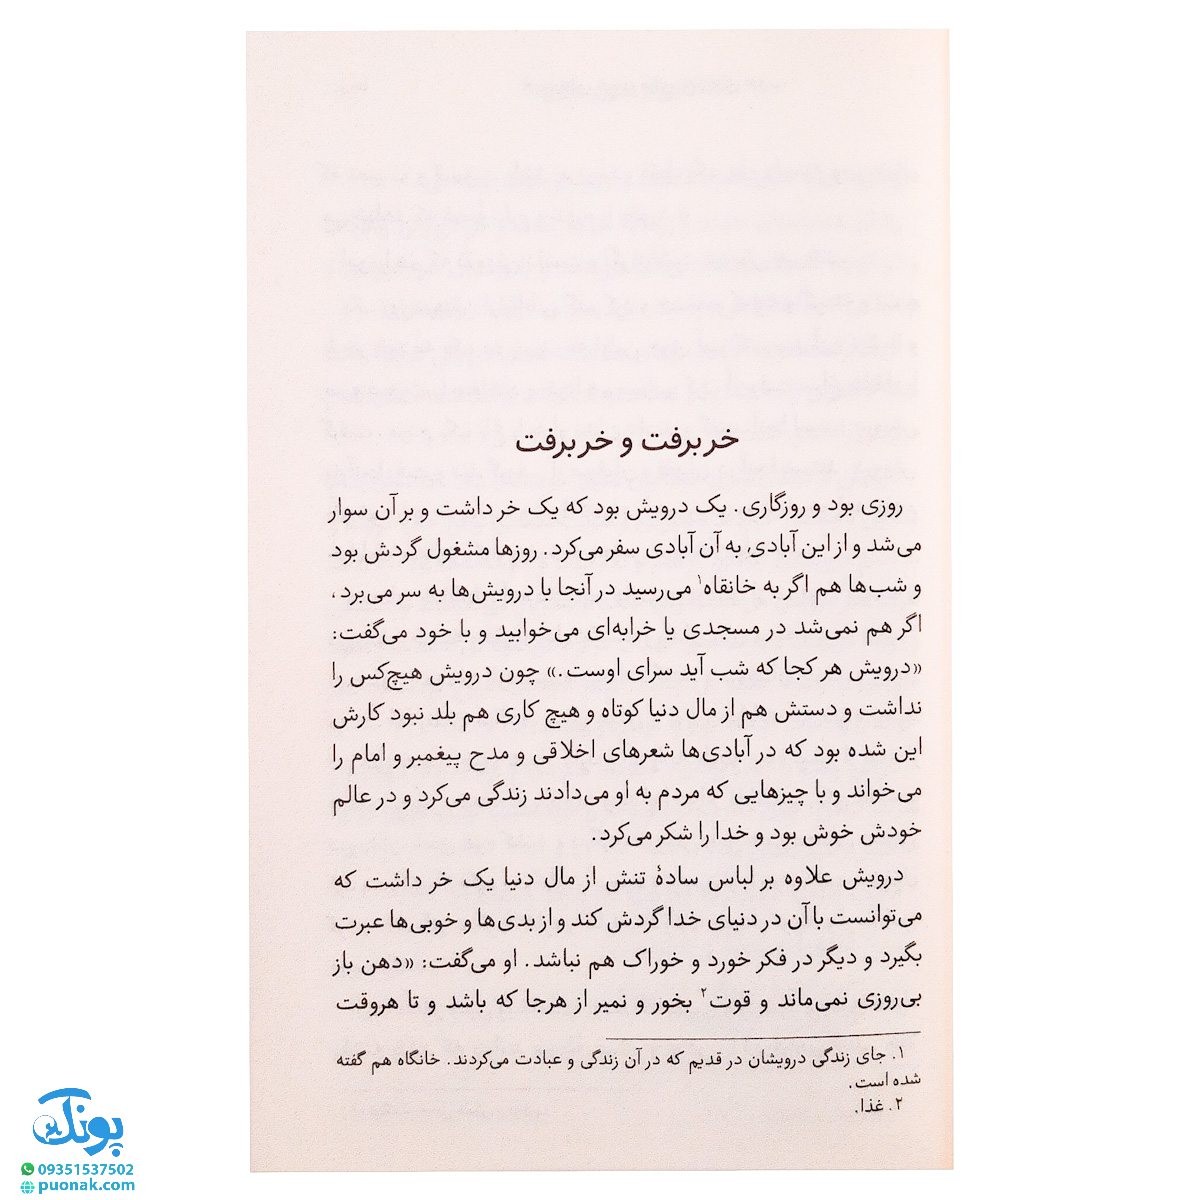 خر برفت و خر برفت
روزی بود و روزگاری. یک درویش بود که یک خر داشت و بر آن سوار
می‌شد و از این آبادی به آن آبادی سفر می‌کرد. روزها مشغول گردش بود
و شب‌ها هم اگر به خانقاه۱ می‌رسید در آنجا با درویش‌ها به سر می‌برد،
اگر هم نمی‌شد در مسجدی یا خرابه‌ای می‌خوابید و با خود می‌گفت:
«درویش هر کجا که شب آید سرای اوست.» چون درویش هیچ‌کس را
نداشت و دستش هم از مال دنیا کوتاه و هیچ کاری هم بلد نبود کارش
این شده بود که در آبادی‌ها شعرهای اخلاقی و مدح پیغمبر و امام را
می‌خواند و با چیزهایی که مردم به او می‌دادند زندگی می‌کرد و در عالم
خودش خوش بود و خدا را شکر می‌کرد.
درویش علاوه بر لباس سادهٔ تنش از مال دنیا یک خر داشت که
می‌توانست با آن در دنیای خدا گردش کند و از بدی‌ها و خوبی‌ها عبرت
بگیرد و دیگر در فکر خورد و خوراک هم نباشد. او می‌گفت: «دهن باز
بی‌روزی نمی‌ماند و قوت۲ بخور و نمیر از هرجا که باشد و تا هروقت
۱. جای زندگی درویشان در قدیم که در آن زندگی و عبادت می‌کردند. خانگاه هم گفته
شده است.
۲. غذا.
پونک
09351537502
puonak.com